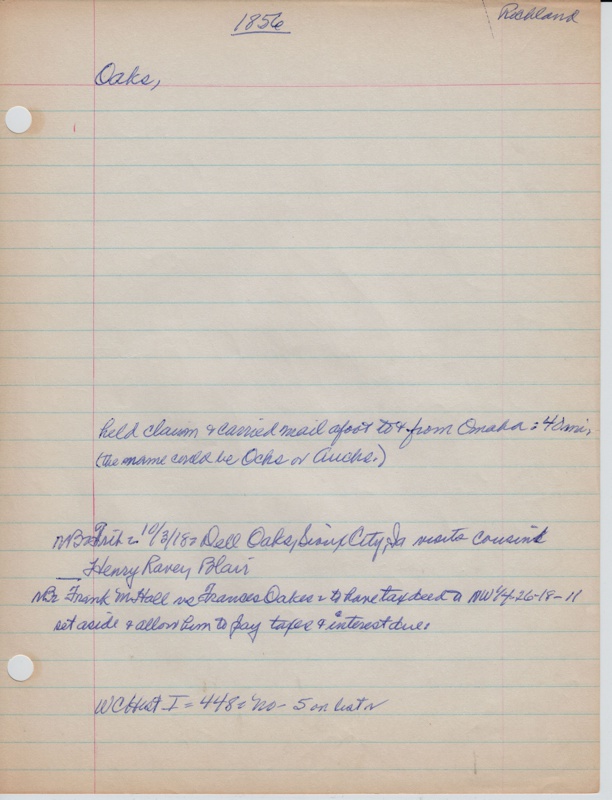 1856
Richland
Oaks,
held claim & carried mail afoot to & from Omaha = 40 mi,
(the name could be Ochs or Auchs.)
10/3/18 = Dell Oaks, Sioux City, Ia visits cousins
Henry Ravey Blair
Frank M Hall vs Frances Oakes = to have tax deed NW 1/4-26-18-11
set aside & allow him to pay taxes & interest due.
WC Hist I = 448 = No- 5 on list